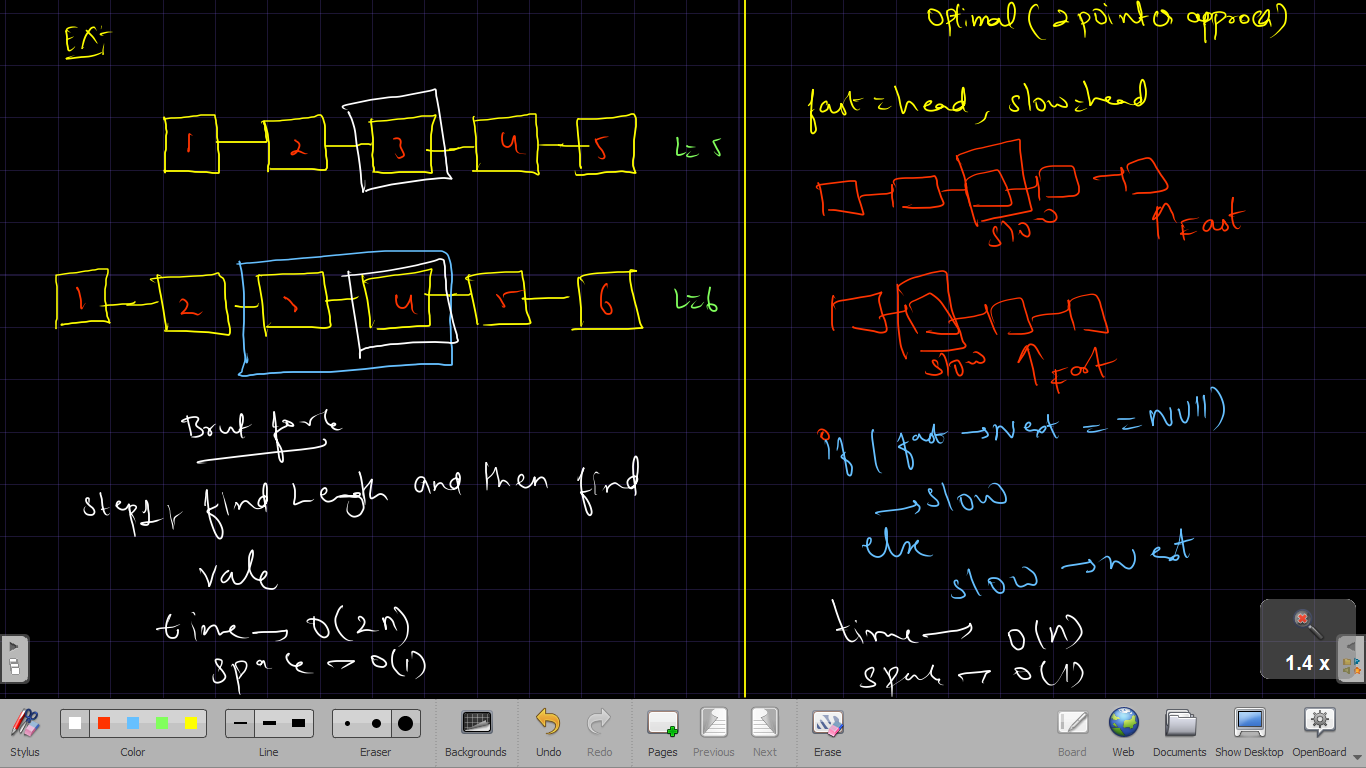 EX:
1 2 3 4 5 L=5
1 2 3 4 5 6 L=6
Brut forte
step1, find Length and then find
vale
time → O(2n)
space → O(1)
optimal (2 pointer approca)
fast = head, slow=head
slow
Fast
slow
Fast
if (fast → Next == NUll)
→ slow
else
slow → Next
time → O(n)
space → O(1)
1.4 x
Stylus Color Line Eraser Backgrounds Undo Redo Pages Previous Next Erase Board Web Documents Show Desktop OpenBoard